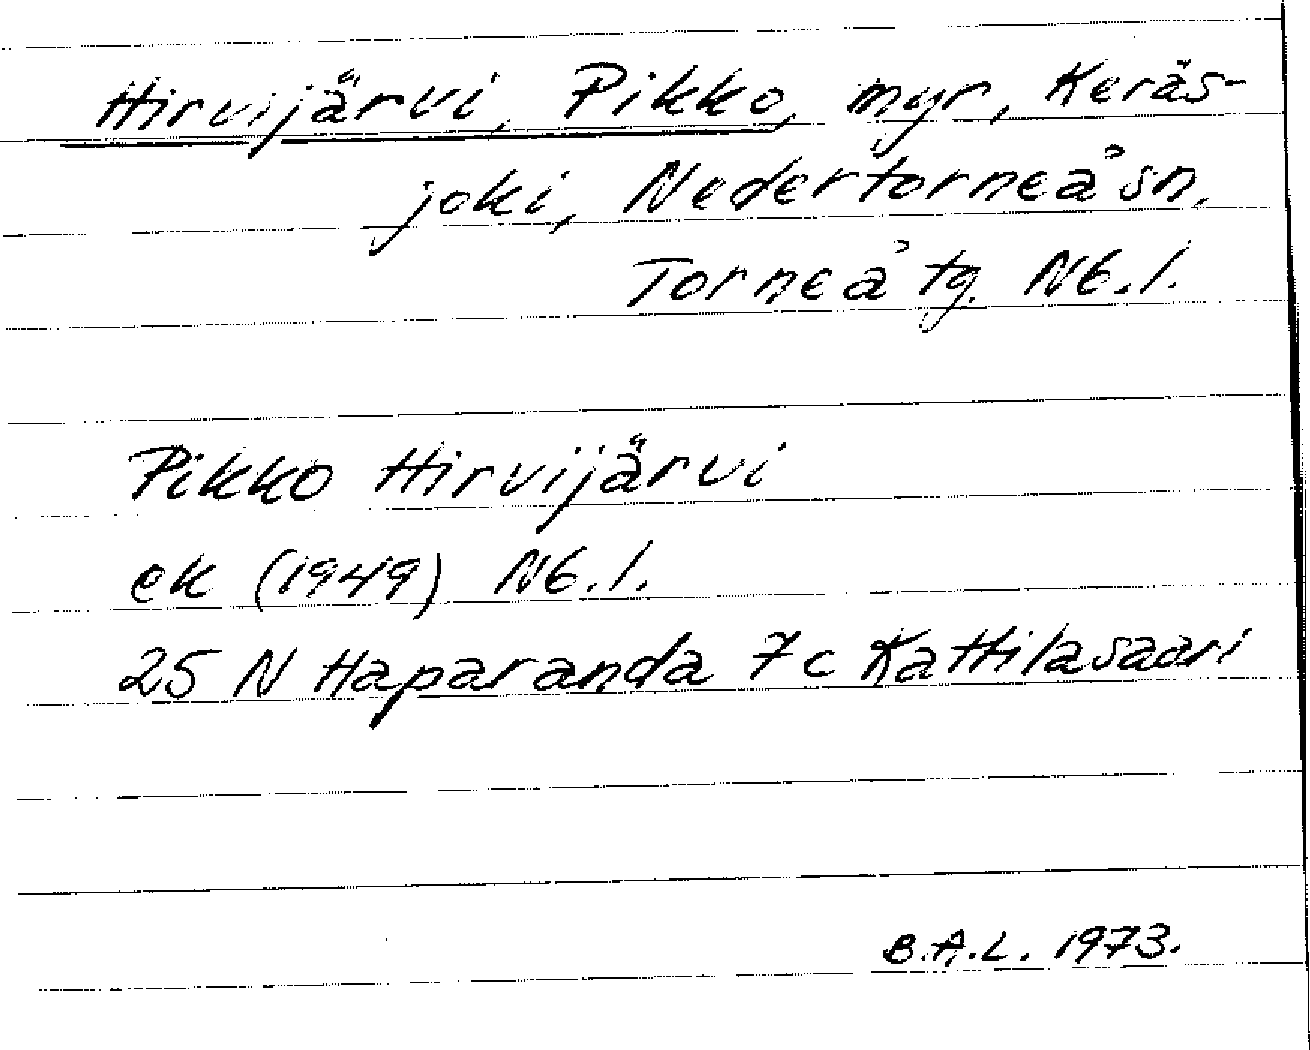 Hirvijärvi, Pikko, myr, Keräs-
joki, Nedertorneå sn,
Torneå tg. Nb.l.
Pikko Hirvijärvi
ek (1949) Nb.l.
25 N Haparanda 7c Kattilasaari
B.A.L. 1973.